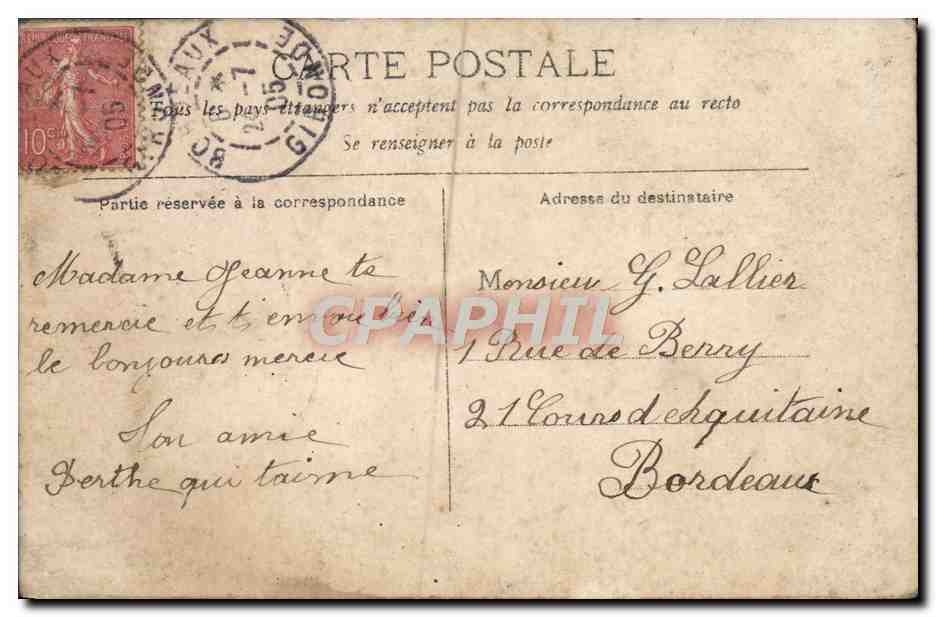 CARTE POSTALE
Tous les pays étrangers n'acceptent pas la correspondance au recto
Se renseigner à la poste
10c
BORDEAUX
GIRONDE
05
Partie réservée à la correspondance
Adresse du destinataire
Madame Jeanne te
remercie et t envoie bien
le bonjours mercie
Ton amie
Berthe qui taime
Monsieur G. Lallier
1 Rue de Berry
21 Cours d Aquitaine
Bordeaux
CPAPHIL